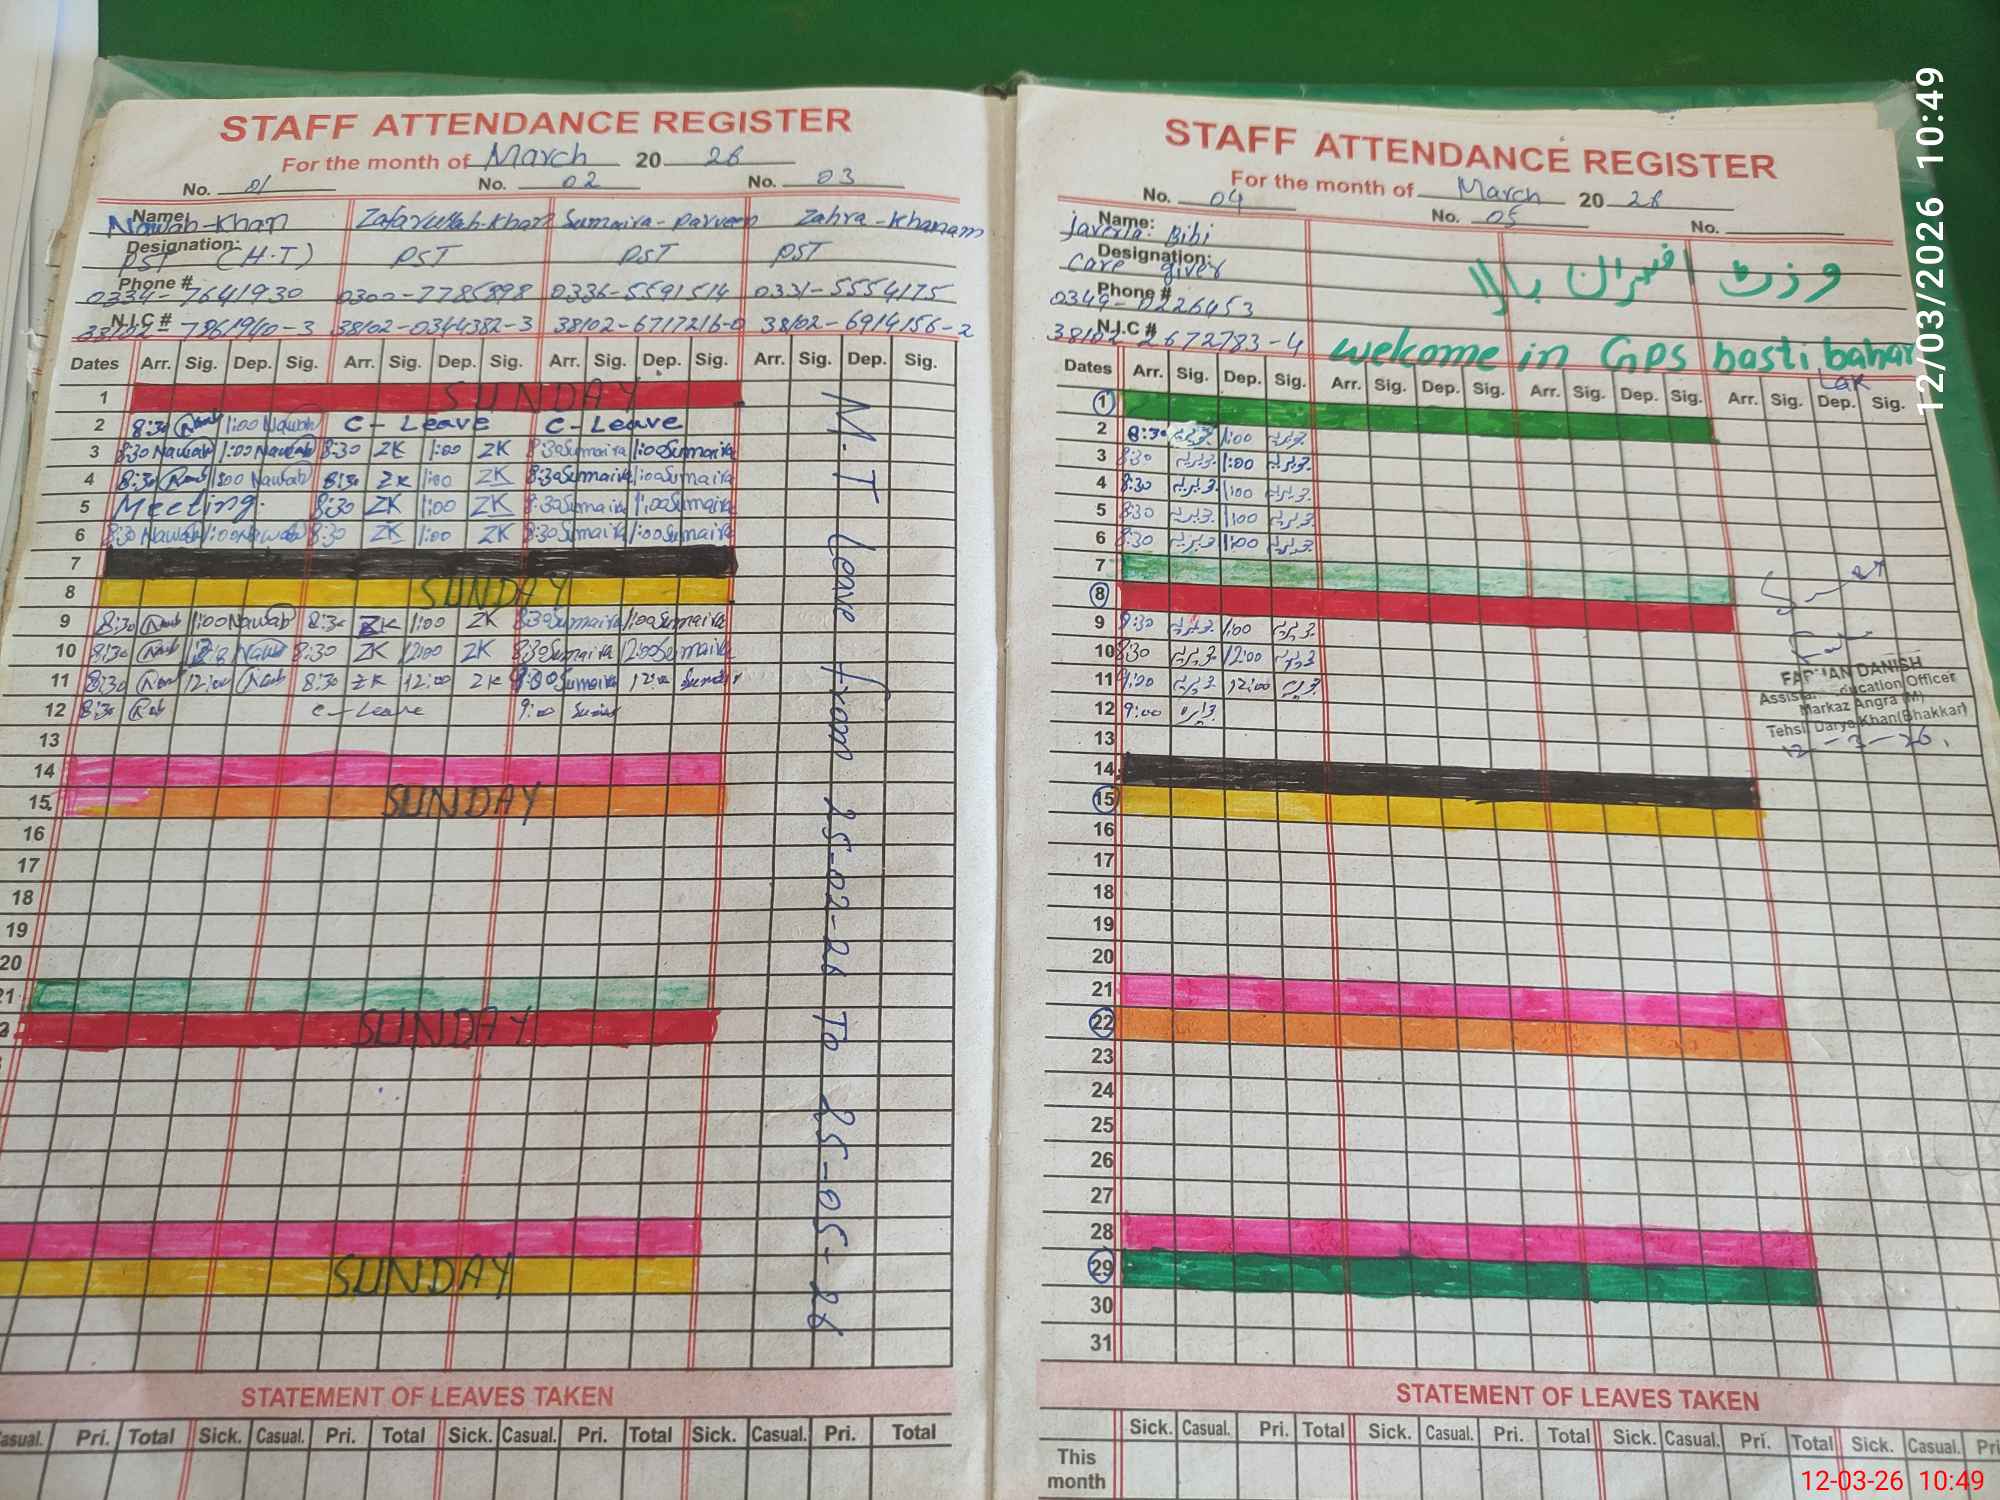 STAFF ATTENDANCE REGISTER
For the month of March 20 26
No. 01 No. 02 No. 03
Name: Nawab-Khan Zafarullah-Khan Sumaira-Parveen Zahra-Khanam
Designation: PST (H.T) PST PST PST
Phone # 0334-7641930 0300-7785898 0336-5591514 0331-5554175
N.I.C # 38102-7861940-3 38102-0344382-3 38102-6717216-0 38102-6914156-2
Dates Arr. Sig. Dep. Sig. Arr. Sig. Dep. Sig. Arr. Sig. Dep. Sig. Arr. Sig. Dep. Sig.
1 SUNDAY
2 8:30 1:00 Nawab C-Leave C-Leave
3 8:30 Nawab 1:00 Nawab 8:30 ZK 1:00 ZK 8:30 Sumaira 1:00 Sumaira
4 8:30 1:00 Nawab 8:30 ZK 1:00 ZK 8:30 Sumaira 1:00 Sumaira
5 Meeting. 8:30 ZK 1:00 ZK 8:30 Sumaira 1:00 Sumaira
6 8:30 Nawab 1:00 Nawab 8:30 ZK 1:00 ZK 8:30 Sumaira 1:00 Sumaira
7
8 SUNDAY
9 8:30 1:00 Nawab 8:30 ZK 1:00 ZK 8:30 Sumaira 1:00 Sumaira
10 8:30 Nawab 8:30 ZK 12:00 ZK 8:30 Sumaira 12:00 Sumaira
11 8:30 12:00 8:30 ZK 12:00 ZK Sumaira 12:00
12 8:30 C-Leave 9:00
13
14
15 SUNDAY
16
17
18
19
20
21
SUNDAY
SUNDAY
M.T Leave from 25-02-26 To 25-05-26
STATEMENT OF LEAVES TAKEN
Casual. Pri. Total Sick. Casual. Pri. Total Sick. Casual. Pri. Total Sick. Casual. Pri. Total
STAFF ATTENDANCE REGISTER
For the month of March 20 26
No. 04 No. 05 No.
Name: Javeria Bibi
Designation: Care giver
وزٹ افسران بالا
Phone # 0349-0226453
N.I.C # 38102-2672783-4
welcome in GPS basti bahar
Lak
Dates Arr. Sig. Dep. Sig. Arr. Sig. Dep. Sig. Arr. Sig. Dep. Sig. Arr. Sig. Dep. Sig.
1
2 8:30 جویریہ 1:00 جویریہ
3 8:30 جویریہ 1:00 جویریہ
4 8:30 جویریہ 1:00 جویریہ
5 8:30 جویریہ 1:00 جویریہ
6 8:30 جویریہ 1:00 جویریہ
7
8
9 8:30 جویریہ 1:00 جویریہ
10 8:30 جویریہ 12:00 جویریہ
11 9:00 جویریہ 12:00 جویریہ
12 9:00 جویریہ
13
14
15
16
17
18
19
20
21
22
23
24
25
26
27
28
29
30
31
FARHAN DANISH
Assistant Education Officer
Markaz Angra (M)
Tehsil Darya Khan (Bhakkar)
12-3-26.
STATEMENT OF LEAVES TAKEN
Sick. Casual. Pri. Total Sick. Casual. Pri. Total Sick. Casual. Pri. Total Sick. Casual. Pri
This month
12/03/2026 10:49
12-03-26 10:49